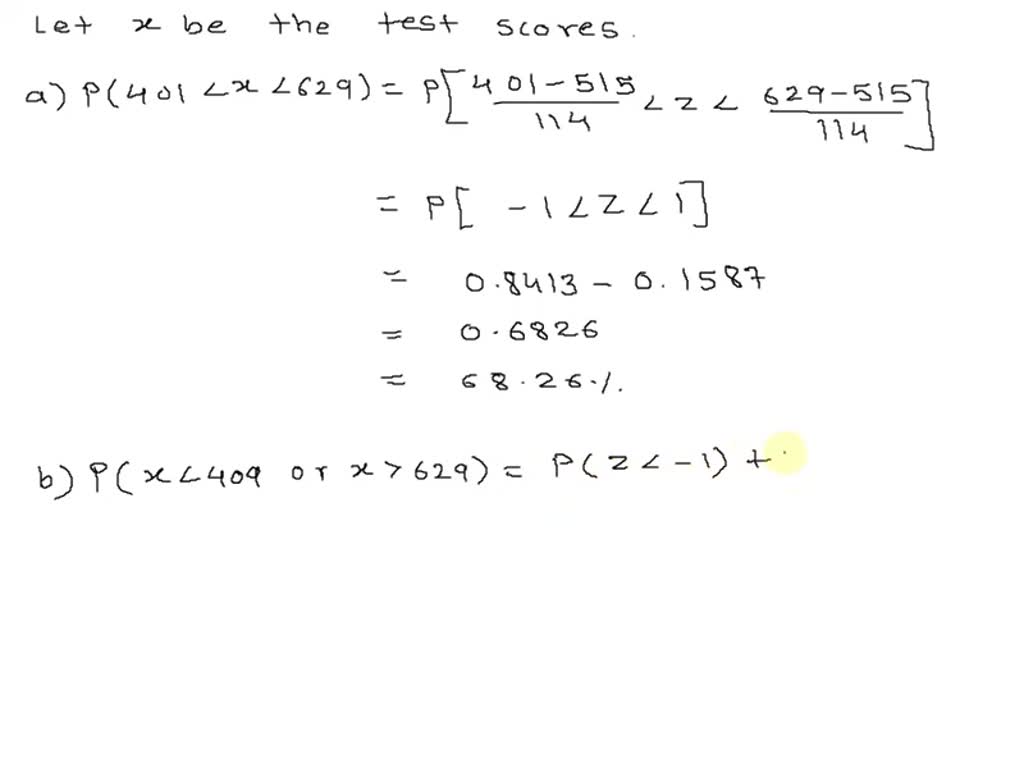 Let x be the test scores.
a) P(401 < x < 629) = P[ 401-515/114 < z < 629-515/114 ]
= P[ -1 < Z < 1 ]
= 0.8413 - 0.1587
= 0.6826
= 68.26 %.
b) P(x < 409 or x > 629) = P(Z < -1) +